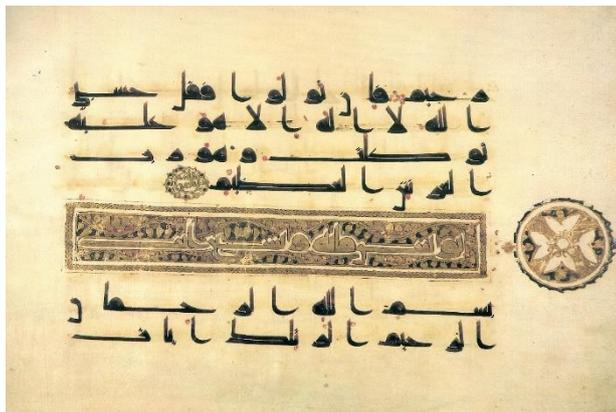 رحيم فان تولوا فقل حسبي
الله لا اله الا هو عليه
توكلت و هو رب
العرش العظيم
بسم الله الرحمن
الرحيم الر تلك ايات